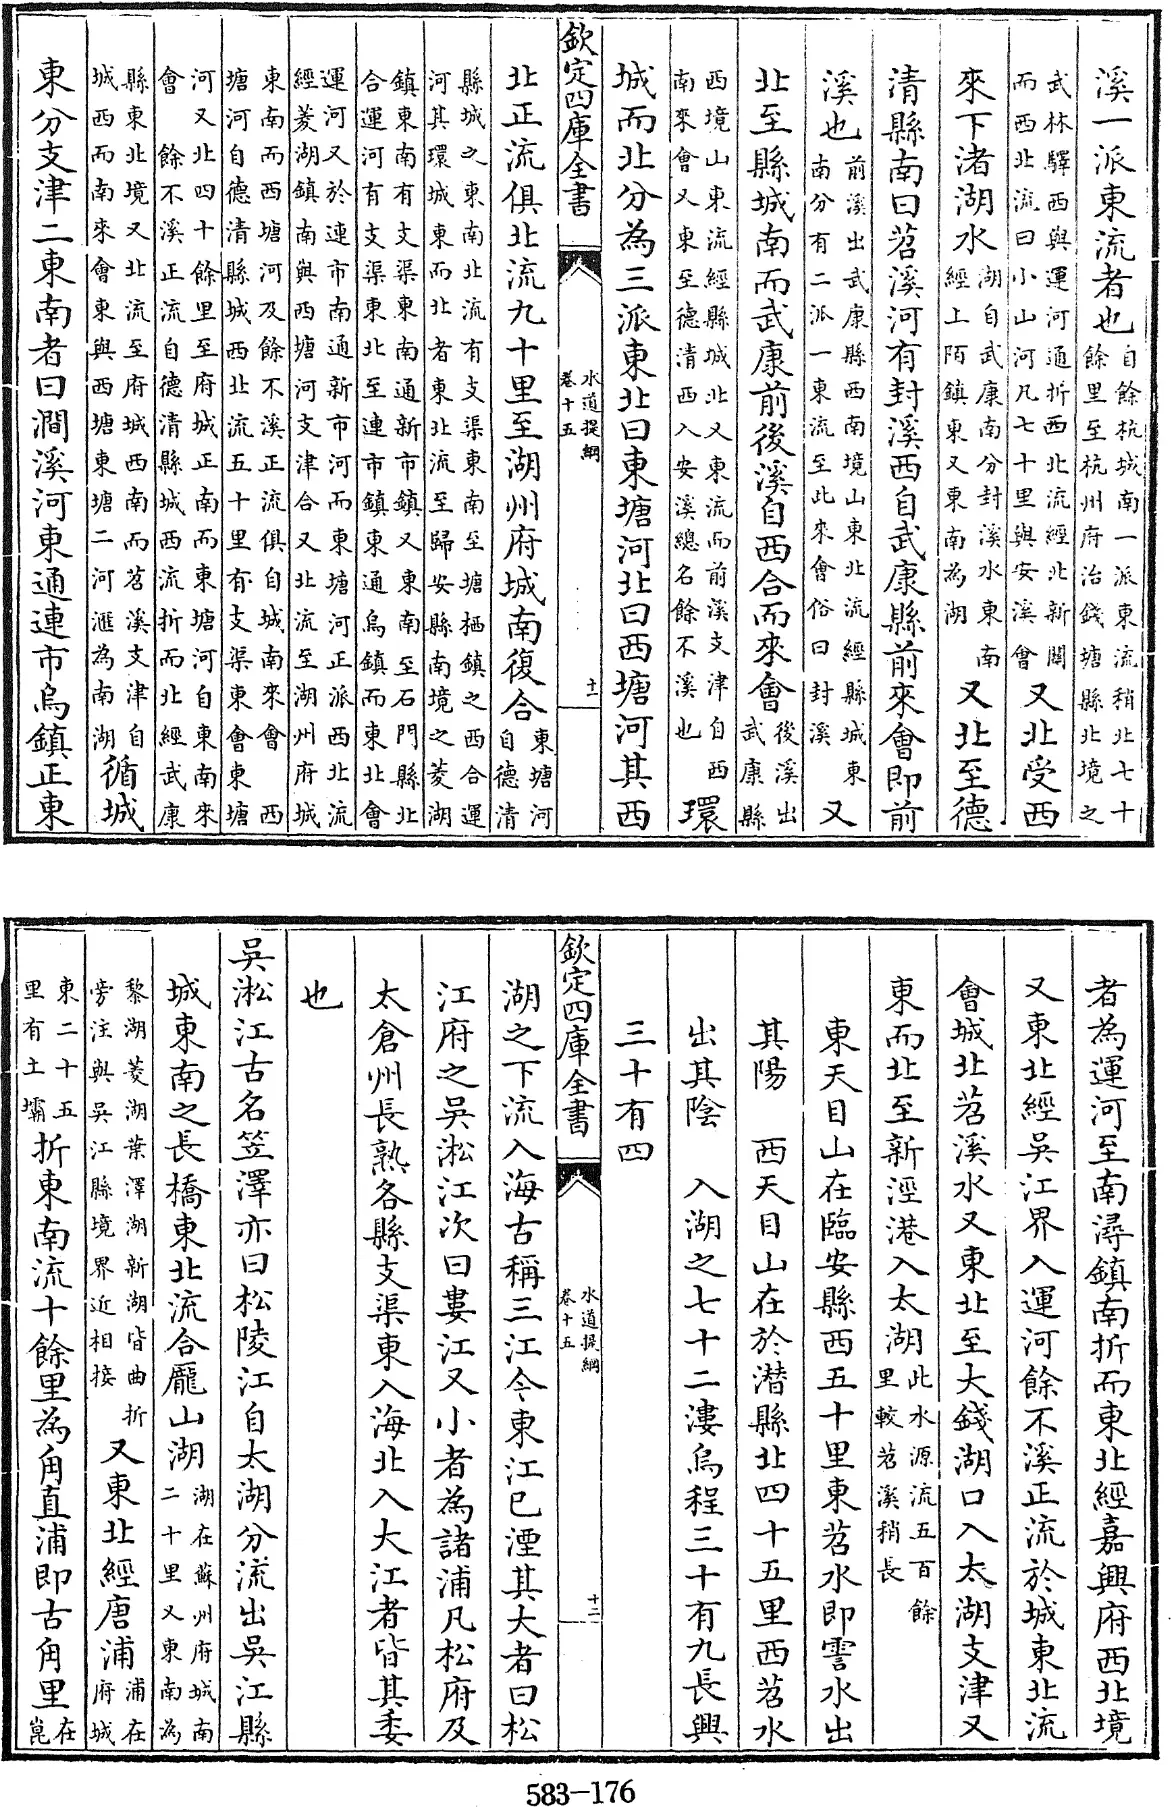 溪一派東流者也自餘杭城南一派東流稍北七十餘里至杭州府治錢塘縣北境之
武林驛西與運河通折西北流經北新關而西北流曰小山河凡七十里與安溪會又北受西
來下渚湖水湖自武康南分封溪水東南經上陌鎮東又東南為湖又北至德
清縣南曰苕溪河有封溪西自武康縣前來會即前
溪也前溪出武康縣西南境山東北流經縣城東南分有二派一東流至此來會俗曰封溪又
北至縣城南而武康前後溪自西合而來會後溪出武康縣
西境山東流經縣城北又東流而前溪支津自西南來會又東至德清西入安溪總名餘不溪也環
城而北分為三派東北曰東塘河北曰西塘河其西
欽定四庫全書
水道提綱
卷十五
十一
北正流俱北流九十里至湖州府城南復合東塘河自德清
縣城之東南北流有支渠東南至塘栖鎮之西合運河其環城東而北者東北流至歸安縣南境之菱湖
鎮東南有支渠東南通新市鎮又東南至石門縣北合運河有支渠東北至連市鎮東通烏鎮而東北會
運河又於連市南通新市河而東塘河正派西北流經菱湖鎮南與西塘河支津合又北流至湖州府城
東南而西塘河及餘不溪正流俱自城南來會 西塘河自德清縣城西北流五十里有支渠東會東塘
河又北四十餘里至府城正南而東塘河自東南來會 餘不溪正流自德清縣城西流折而北經武康
縣東北境又北流至府城西南而苕溪支津自城西而南來會東與西塘東塘二河滙為南湖循城
東分支津二東南者曰澗溪河東通連市烏鎮正東
者為運河至南潯鎮南折而東北經嘉興府西北境
又東北經吳江界入運河餘不溪正流於城東北流
會城北苕溪水又東北至大錢湖口入太湖支津又
東而北至新涇港入太湖此水源流五百餘里較苕溪稍長
東天目山在臨安縣西五十里東苕水即霅水出
其陽 西天目山在於潛縣北四十五里西苕水
出其陰 入湖之七十二漊烏程三十有九長興
三十有四
欽定四庫全書
水道提綱
卷十五
十二
湖之下流入海古稱三江今東江已湮其大者曰松
江府之吳淞江次曰婁江又小者為諸浦凡松府及
太倉州長熟各縣支渠東入海北入大江者皆其委
也
吳淞江古名笠澤亦曰松陵江自太湖分流出吳江縣
城東南之長橋東北流合龎山湖湖在蘇州府城南二十里又東南為
黎湖菱湖葉澤湖新湖皆曲折旁注與吳江縣境界近相接又東北經唐浦浦在府城
東二十五里有土壩折東南流十餘里為甪直浦即古甪里在崑
583-176